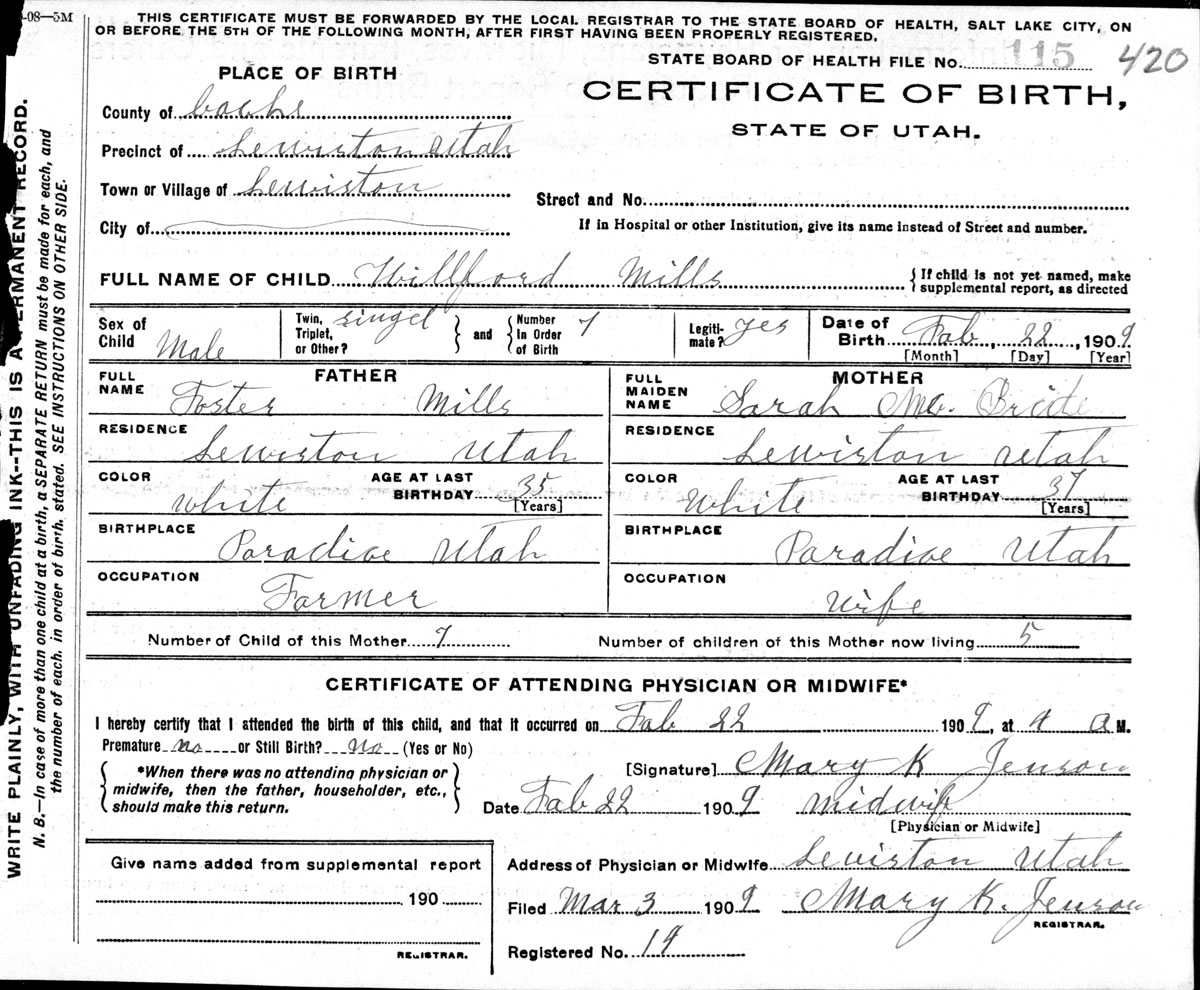 -08—5M
THIS CERTIFICATE MUST BE FORWARDED BY THE LOCAL REGISTRAR TO THE STATE BOARD OF HEALTH, SALT LAKE CITY, ON
OR BEFORE THE 5TH OF THE FOLLOWING MONTH, AFTER FIRST HAVING BEEN PROPERLY REGISTERED.
STATE BOARD OF HEALTH FILE No. 115 420
PLACE OF BIRTH
CERTIFICATE OF BIRTH,
STATE OF UTAH.
County of Cache
Precinct of Lewiston Utah
Town or Village of Lewiston
Street and No.
City of
If in Hospital or other Institution, give its name instead of Street and number.
FULL NAME OF CHILD Willford Mills
{ If child is not yet named, make
supplemental report, as directed
Sex of Child Male
Twin, Triplet, or Other? singel
and Number in Order of Birth 7
Legitimate? yes
Date of Birth Fab, 22, 1909
[Month] [Day] [Year]
FATHER
FULL NAME Foster Mills
RESIDENCE Lewiston Utah
COLOR White
AGE AT LAST BIRTHDAY 35
[Years]
BIRTHPLACE Paradice Utah
OCCUPATION Farmer
MOTHER
FULL MAIDEN NAME Sarah Mc. Bride
RESIDENCE Lewiston Utah
COLOR White
AGE AT LAST BIRTHDAY 37
[Years]
BIRTHPLACE Paradice Utah
OCCUPATION Wife
Number of Child of this Mother 7
Number of children of this Mother now living 5
CERTIFICATE OF ATTENDING PHYSICIAN OR MIDWIFE*
I hereby certify that I attended the birth of this child, and that it occurred on Fab 22 1909, at 9 a M.
Premature no or Still Birth? no (Yes or No)
*When there was no attending physician or
midwife, then the father, householder, etc.,
should make this return.
[Signature] Mary K Jenson
Date Fab 22 1909 midwife
[Physician or Midwife]
Give name added from supplemental report
190
REGISTRAR.
Address of Physician or Midwife Lewiston Utah
Filed Mar 3 1909 Mary K. Jenson
REGISTRAR.
Registered No. 19
WRITE PLAINLY, WITH UNFADING INK--THIS IS A PERMANENT RECORD.
N. B.—In case of more than one child at a birth, a SEPARATE RETURN must be made for each, and
the number of each, in order of birth, stated. SEE INSTRUCTIONS ON OTHER SIDE.